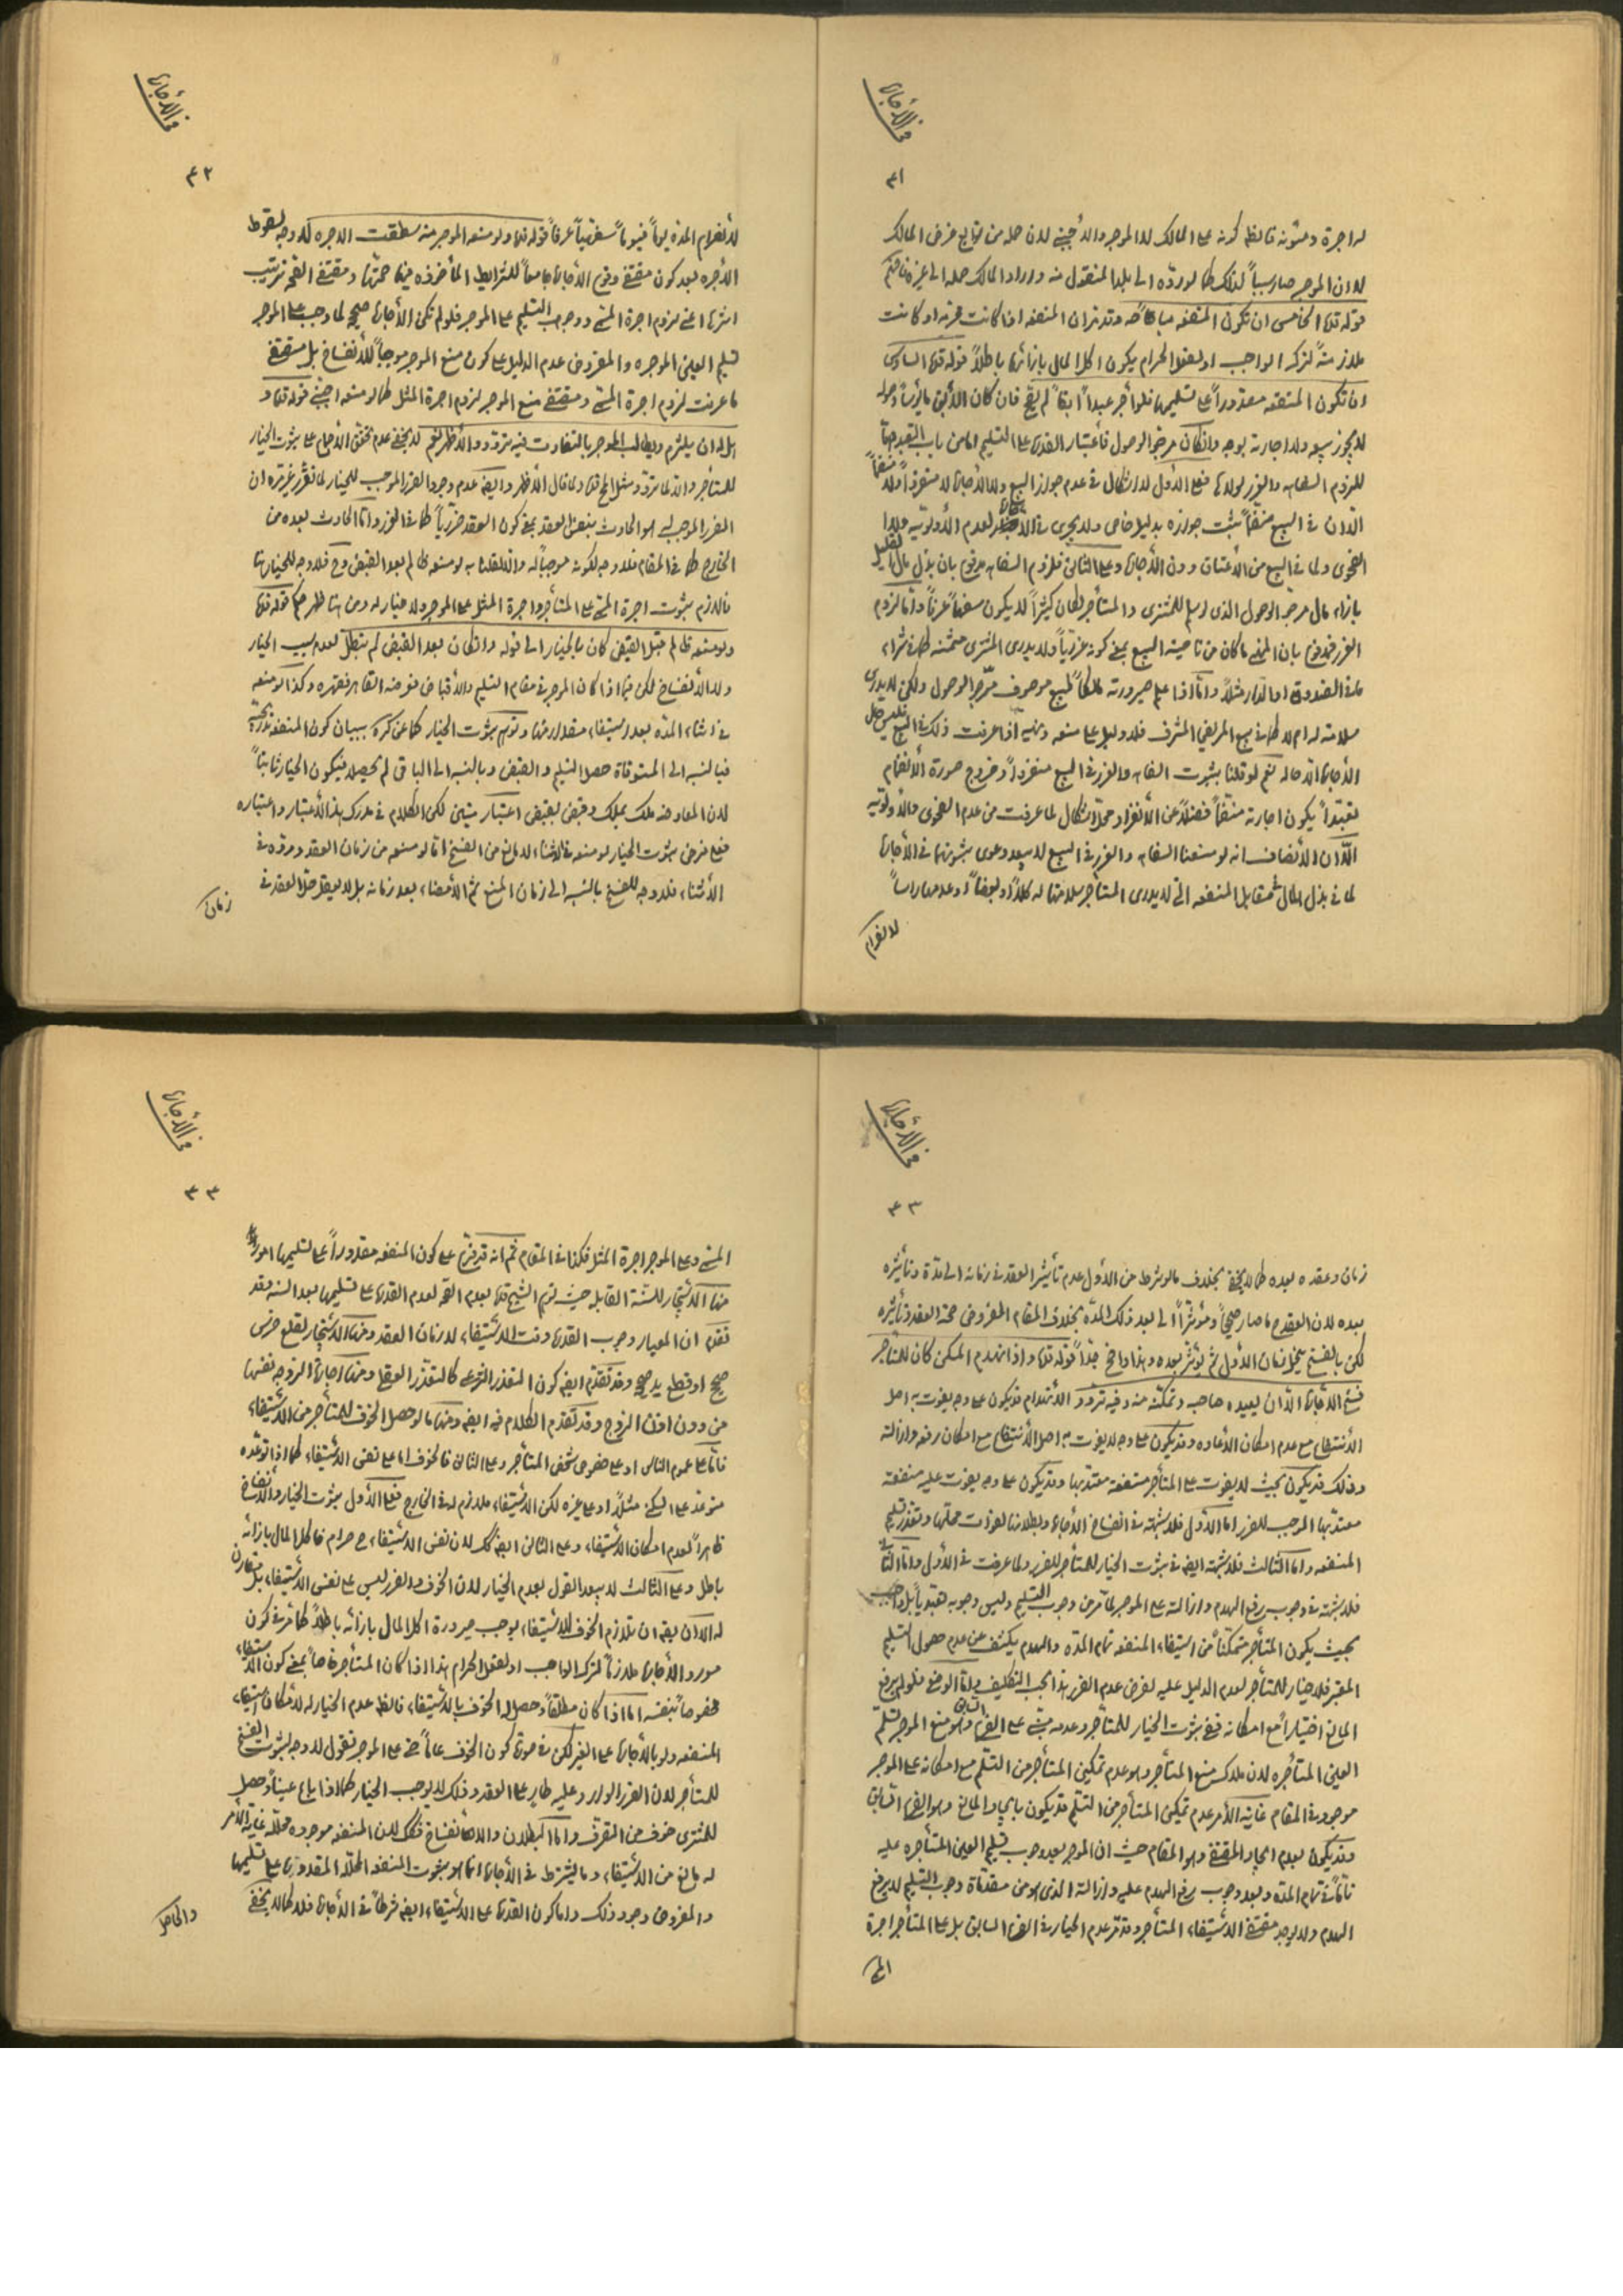 في الأجارة
٤١
له اجرة ومئونة فالظ كونه على المالك لا الموجر والأجنبي لان حمله من توابع غرض المالك
لا ان الموجر صار سبباً لذلك كما لو ردّه الى بلد المنقول منه واراد المالك حمله الى غيره فافهم
قوله قده الخامس ان تكون المنفعه مباحة قد مر ان المنفعه اذا كانت محرمه او كانت
ملازمة لترك الواجب او لفعل الحرام يكون اكل المال بازائها باطلاً قوله قده السادس
ان تكون المنفعه مقدوراً على تسليمها فلو آجر عبداً آبقاً لم يصح فان كان الآبق مأيوساً وصوله
لا يجوز بيعه ولا اجارته بوجه وان كان مرجو الوصول فأعتبار القدرة على التسليم اما من باب التعبد واما
للزوم السفاهه والغرر لولاها فعلى الأول لا اشكال في عدم جواز البيع ولا الأجارة لا منفرداً ولا منضماً
الا ان في البيع منضماً ثبت جوازه بدليل خاص ولا يجرى في الأجارة لعدم الأولوية ولا
الفحوى ولما في البيع من الأعتاق دون الأجارة وعلى الثاني فلزوم السفاهه مدفوع بان بذل مال القليل
بازاء مال مرجو الوصول الذى لو سلم للمشترى والمستأجر لكان كثيراً لا يكون سفهاً عرفاً واما لزوم
الغرر فمدفوع بان المنهي ما كان من ناحية البيع بمعنى كونه غررياً ولا يدرى المشترى مثمنه كما في شراء
ما في الصندوق او الدار مثلاً واما اذا علم صيرورته مالكاً لمبيع موصوف مرجو الوصول ولكن لا يدرى
سلامته له ام لا كما في بيع المريض المشرف فلا دليل على منعه ونهيه اذا عرفت ذلك في البيع فليس حال
الأجارة الا حاله نعم لو قلنا بثبوت السفاهه والغرر في البيع منفرداً وخروج صورة الأنضمام
تعبّداً يكون اجارته منضماً فضلاً عن الأنفراد محل اشكال لما عرفت من عدم الفحوى والأولوية
الا ان الأنصاف انه لو منعنا السفاهه والغرر في البيع لا يبعد دعوى ثبوتهما في الأجارة
لما في بذل المال في مقابل المنفعه التي لا يدرى المستأجر سلامتها له كلاً او بعضاً او عدمها راساً
لانصرام
في الأجارة
٤٢
لأنصرام المدة يوماً فيوماً سفهياً عرفاً قوله قده ولو منعه الموجر منه سقطت الاجره لا وجه لسقوط
الأجره بعد كون مقتضى وقوع الأجارة جامعاً للشرايط المأخوذه فيها صحتها ومقتضى الصحه ترتيب
اثرها اعني لزوم اجرة المسمى ووجوب التسليم على الموجر فلو لم تكن الأجارة صحيحه لما وجب على الموجر
تسليم العين الموجره والمفروض عدم الدليل على كون منع الموجر موجباً للأنفساخ بل مقتضى
ما عرفت لزوم اجرة المسمى ومقتضى منع الموجر لزوم اجرة المثل كما لو منعه اجنبي قوله قده و
هل له ان يلتزم ويطالب الموجر بالتفاوت فيه تردد والأظهر نعم لا يخفى عدم تحقق الأجماع على ثبوت الخيار
للمستأجر والا لما تردد مثل المحقق قده ولما قال الأظهر وايضا عدم وجود الضرر الموجب للخيار لما تقرر غير مره ان
الضرر الموجب له هو الحادث بنفس العقد بمعنى كون العقد ضررياً كما في الغرر واما الحادث بعده من
الخارج كما في المقام فلا وجه لكونه موجباً له والا لقلنا به لو منعه ظالم بعد القبض وح فلا وجه للخيار هنا
فاللازم ثبوت اجرة المسمى على المستأجر واجرة المثل على الموجر ولا خيار له ومن هنا ظهر حكم قوله قده
ولو منعه ظالم قبل القبض كان بالخيار الى قوله وان كان بعد القبض لم تبطل لعدم سبب الخيار
ولا الأنفساخ لكن فيما اذا كان الموجر في مقام التسليم والأقباض فعرضه القاهر فقهره وكذا لو منعه
في اثناء المدة بعد استيفاء مقدار منها وتوهم ثبوت الخيار كما عن كره ببيان كون المنفعه تدريجيّه
فبالنسبه الى المستوفاة حصل التسليم والقبض وبالنسبه الى الباقي لم يحصلا فيكون الخيار ثابتاً
لان المعاوضه ملك بملك وقبض بقبض اعتبار متين لكن الكلام في مدرك هذا الأعتبار واعتباره
فمع فرض ثبوت الخيار لو منعه في الاثناء لا مانع من الفسخ اما لو منعه من زمان العقد وردّه في
الأثناء فلا وجه للفسخ بالنسبه الى زمان المنع ثم الأمضاء بعد زمانه بل لا يعقل حل العقد في
زمان
في الأجارة
٤٣
زمان وعقده بعده كما لا يخفى بخلاف ما لو شرط من الأول عدم تأثير العقد في زمانه الى مدة وتأثيره
بعده لان العقد ح ما صار صحيحاً ومؤثراً الى بعد ذلك المدة بخلاف المقام المفروض صحة العقد وتأثيره
لكن بالفسخ ينحل زمان الأول ثم يؤثر بعده وهذا واضح جداً قوله قده واذا انهدم المسكن كان للمستأجر
فسخ الأجارة الا ان يعيده صاحبه وتمكّنه منه وفيه تردد الأنهدام قد يكون على وجه يفوت به اصل
الأنتفاع مع عدم امكان الأعاده وقد يكون على وجه لا يفوت به اصل الأنتفاع مع امكان رفعه وازالته
وذلك قد يكون بحيث لا يفوت على المستأجر منفعة معتد بها وقد يكون على وجه يفوت عليه منفعة
معتد بها الموجب للضرر اما الأول فلا شبهة في انفساخ الأجارة وبطلانها لفوات محلها وتعذر تسليم
المنفعه واما الثالث فلا شبهة ايضا في ثبوت الخيار للمستأجر للضرر ولما عرفت في الأول واما الثاني
فلا شبهة في وجوب رفع الهدم وازالته على الموجر لما مر من وجوب التسليم وليس وجوبه تعبدياً بل واجب
بحيث يكون المستأجر متمكّناً من استيفاء المنفعه تمام المدة والهدم يكشف عن عدم حصول التسليم
المعتبر فلا خيار للمستأجر لعدم الدليل عليه لفرض عدم الضرر هذا بحسب التكليف واما الوضع فلو لم يرفع
المانع اختياراً مع امكانه ففي ثبوت الخيار للمستأجر وعدمه مبني على الفرع السابق وهو منع الموجر تسلم
العين المستأجره لان ملاك منع المستأجر وهو عدم تمكين المستأجر من التسلّم مع امكانه على الموجر
موجود في المقام غاية الأمر عدم تمكين المستأجر من التسلّم قد يكون بايجاد المانع وهو الفرع السابق
وقد يكون بعدم ايجاد المقتضى وهو المقام حيث ان الموجر بعد وجوب تسليم العين المستأجره عليه
تامّاً في تمام المدة وبعد وجوب رفع الهدم عليه وازالته الذى هو من مقدماة وجوب التسليم لا يرفع
الهدم ولا يوجد مقتضى الأستيفاء المستأجر وقد مرّ عدم الخيار في الفرع السابق بل على المستأجر اجرة
المسمى
في الأجارة
٤٤
المسمى وعلى الموجر اجرة المثل فكذا في المقام ثم انه قد فرّع على كون المنفعه مقدوراً على تسليمها امور
منها الأستيجار للسنة القابله حيث توهم الشيخ قده بعدم الصحه لعدم القدرة على تسليمها بعد السنه فقد
تقدم ان المعيار وجوب القدرة وقت الأستيفاء لا زمان العقد ومنها الأستيجار لقلع ضرس
صحيح او قطع يد صحيحه وقد تقدّم ايضا كون المتعذر الشرعى كالمتعذّر العقلى ومنها اجارة الزوجه نفسها
من دون اذن الزوج وقد تقدّم الكلام فيه ايضا ومنها ما لو حصل الخوف للمستأجر من الأستيفاء
فاما على عموم الناس او على خصوص شخص المستأجر وعلى الثاني فالخوف اما على نفس الأستيفاء كما اذا توعّده
متوعد على السكنى مثلاً او على غيره لكن الأستيفاء ملازم له في الخارج فعلى الأول ثبوت الخيار والأنفساخ
ظاهراً لعدم امكان الأستيفاء وعلى الثاني ايضا كك لان نفس الأستيفاء ح حرام فاكل المال بازائه
باطل وعلى الثالث لا يبعد القول بعدم الخيار لان الخوف والضرر ليس على نفس الأستيفاء بل مقارن
له الا ان يقال ان تلازم الخوف للأستيفاء يوجب صيرورة اكل المال بازائه باطلاً كما مرّ في كون
مورد الأجارة ملازماً لترك الواجب او لفعل الحرام هذا اذا كان المستأجر خاصاً بمعنى كون الأستيفاء
مخصوصاً بنفسه اما اذا كان مطلقاً وحصل له الخوف بالأستيفاء فالظ عدم الخيار له لأمكان استيفاء
المنفعه ولو بالأجارة على الغير لكن في صورة كون الخوف عاماً حتى على الموجر نقول لا وجه لثبوت الفسخ
للمستأجر لان الضرر الوارد عليه طار على العقد وذلك لا يوجب الخيار كما اذا باع عيناً وحصل
للمشترى خوف من التصرف واما البطلان والأنفساخ فكك لان المنفعه موجوده محللة غاية الأمر
له مانع من الأستيفاء وما يشترط في الأجارة انما هو ثبوت المنفعه المحلّلة المقدورة على تسليمها
والمفروض وجود ذلك واما كون القدرة على الأستيفاء ايضا شرطاً في الأجارة فلا كما لا يخفى
والحاصل